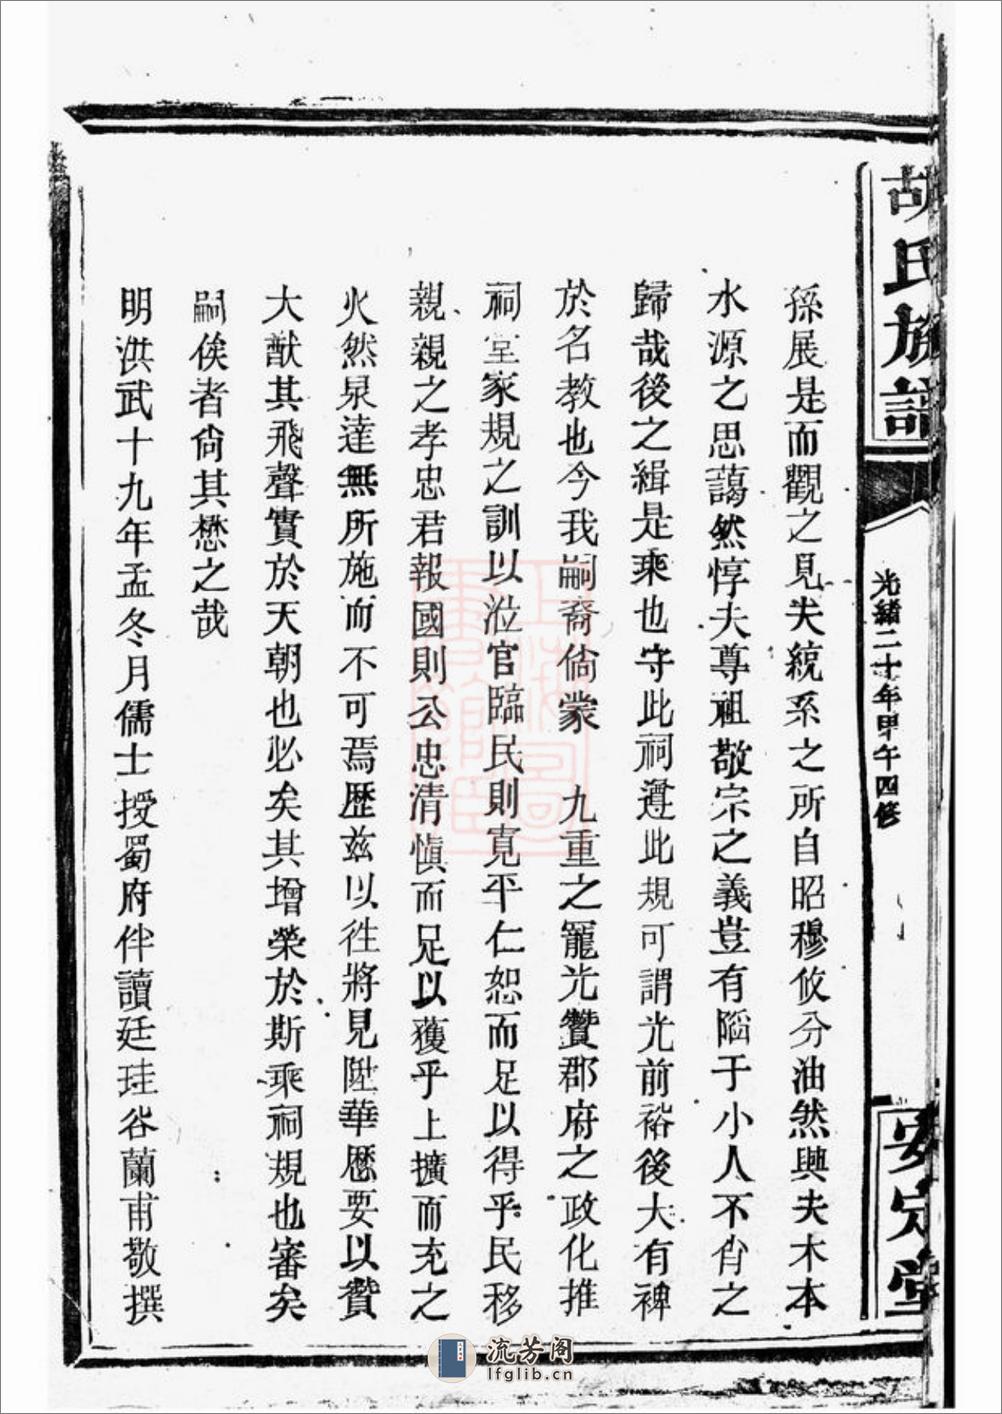 胡氏族譜
光緒二十年甲午四修
安定堂
孫展是而觀之見夫統系之所自昭穆攸分油然興夫木本
水源之思藹然惇夫尊祖敬宗之義豈有䧟于小人不肖之
歸哉後之緝是乘也守此祠遵此規可謂光前裕後大有裨
於名教也今我嗣裔倘蒙 九重之寵光贊郡府之政化推
祠堂家規之訓以涖官臨民則寬平仁恕而足以得乎民移
親親之孝忠君報國則公忠清慎而足以獲乎上擴而充之
火然泉達無所施而不可焉歷茲以徃將見陞華歷要以贊
大猷其飛聲實於天朝也必矣其增榮於斯乘祠規也審矣
嗣俟者尙其懋之哉
明洪武十九年孟冬月儒士授蜀府伴讀廷珪谷蘭甫敬撰
上海圖
書館藏
流芳阁
lfglib.cn